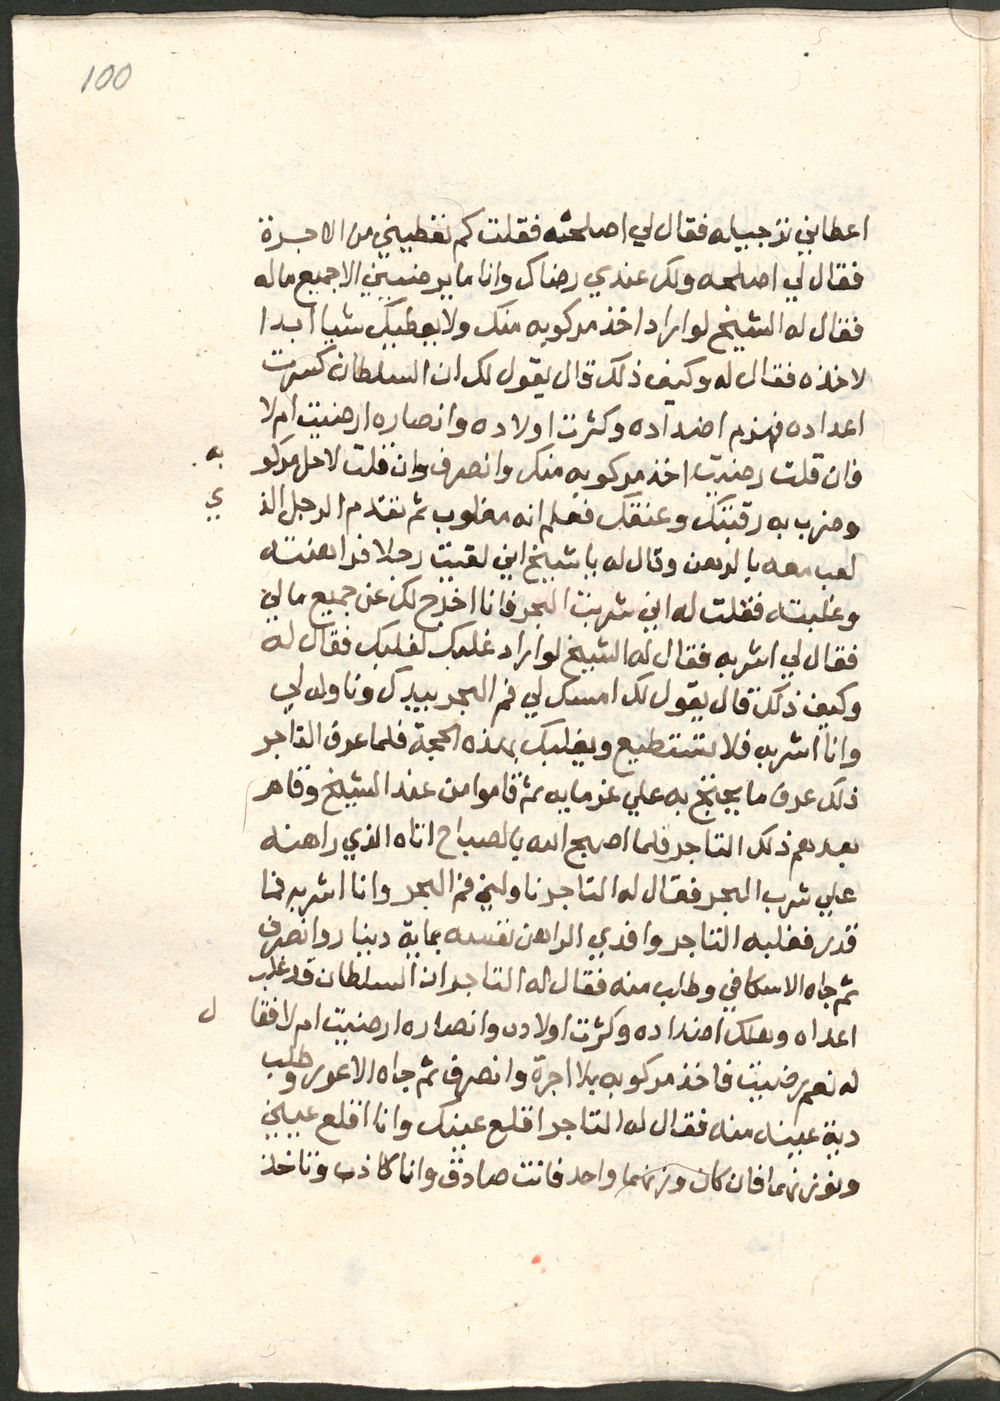 100
اعطابني تزجيباله فقال لي اصلحته فقلت كم تعطيني من الاجرة
فقال لي اصلحه ولك عندي رضاك وانا ما يرضيني الا جميع ماله
فقال له الشيخ لو اراد اخذ مركوبه منك ولا يعطيك شيا ابدا
لاخذه فقال له وكيف ذلك قال يقول لك ان السلطان كسرت
اعداده فهزم اضداده وكثرت اولاده وانصاره ارضيت ام لا
فان قلت رضيت اخذ مركوبه منك وانصرف وان قلت لا حل مركو
به
وضرب به رقبتك وعنقك فعلم انه مغلوب ثم تقدم الرجل الذ
ي
لعب معه بالرهن وقال له يا شيخ اني لقيت رجلا فراهنته
وغلبته فقلت له اني شربت البحر فانا اخرج لك عن جميع مالي
فقال لي اشربه فقال له الشيخ لو اراد غلبك لغلبك فقال له
وكيف ذلك قال يقول لك امسك لي فم البحر بيدك وناوله لي
وانا اشربه فلا تستطيع ويغلبك بهذه الحجة فلما عرف التاجر
ذلك عرف ما يحتج به علي غرمايه ثم قاموا من عند الشيخ وقام
بعدهم ذلك التاجر فلما اصبح الله بالصباح اتاه الذي راهنه
علي شرب البحر فقال له التاجر ناولني فم البحر وانا اشربه فما
قدر فغلبه التاجر وافدي الراهن نفسه بماية دينار وانصرف
ثم جاه الاسكافي وطلب منه فقال له التاجر ان السلطان قد غلب
اعداه وهلك اضداده وكثرت اولاده وانصاره ارضيت ام لا فقا
ل
له نعم رضيت فاخذ مركوبه بلا اجرة وانصرف ثم جاه الاعور وطلب
دية عينه منه فقال له التاجر اقلع عينك وانا اقلع عيني
ونوزنهما فان كان وزنهما واحد فانت صادق وانا كاذب وتاخذ